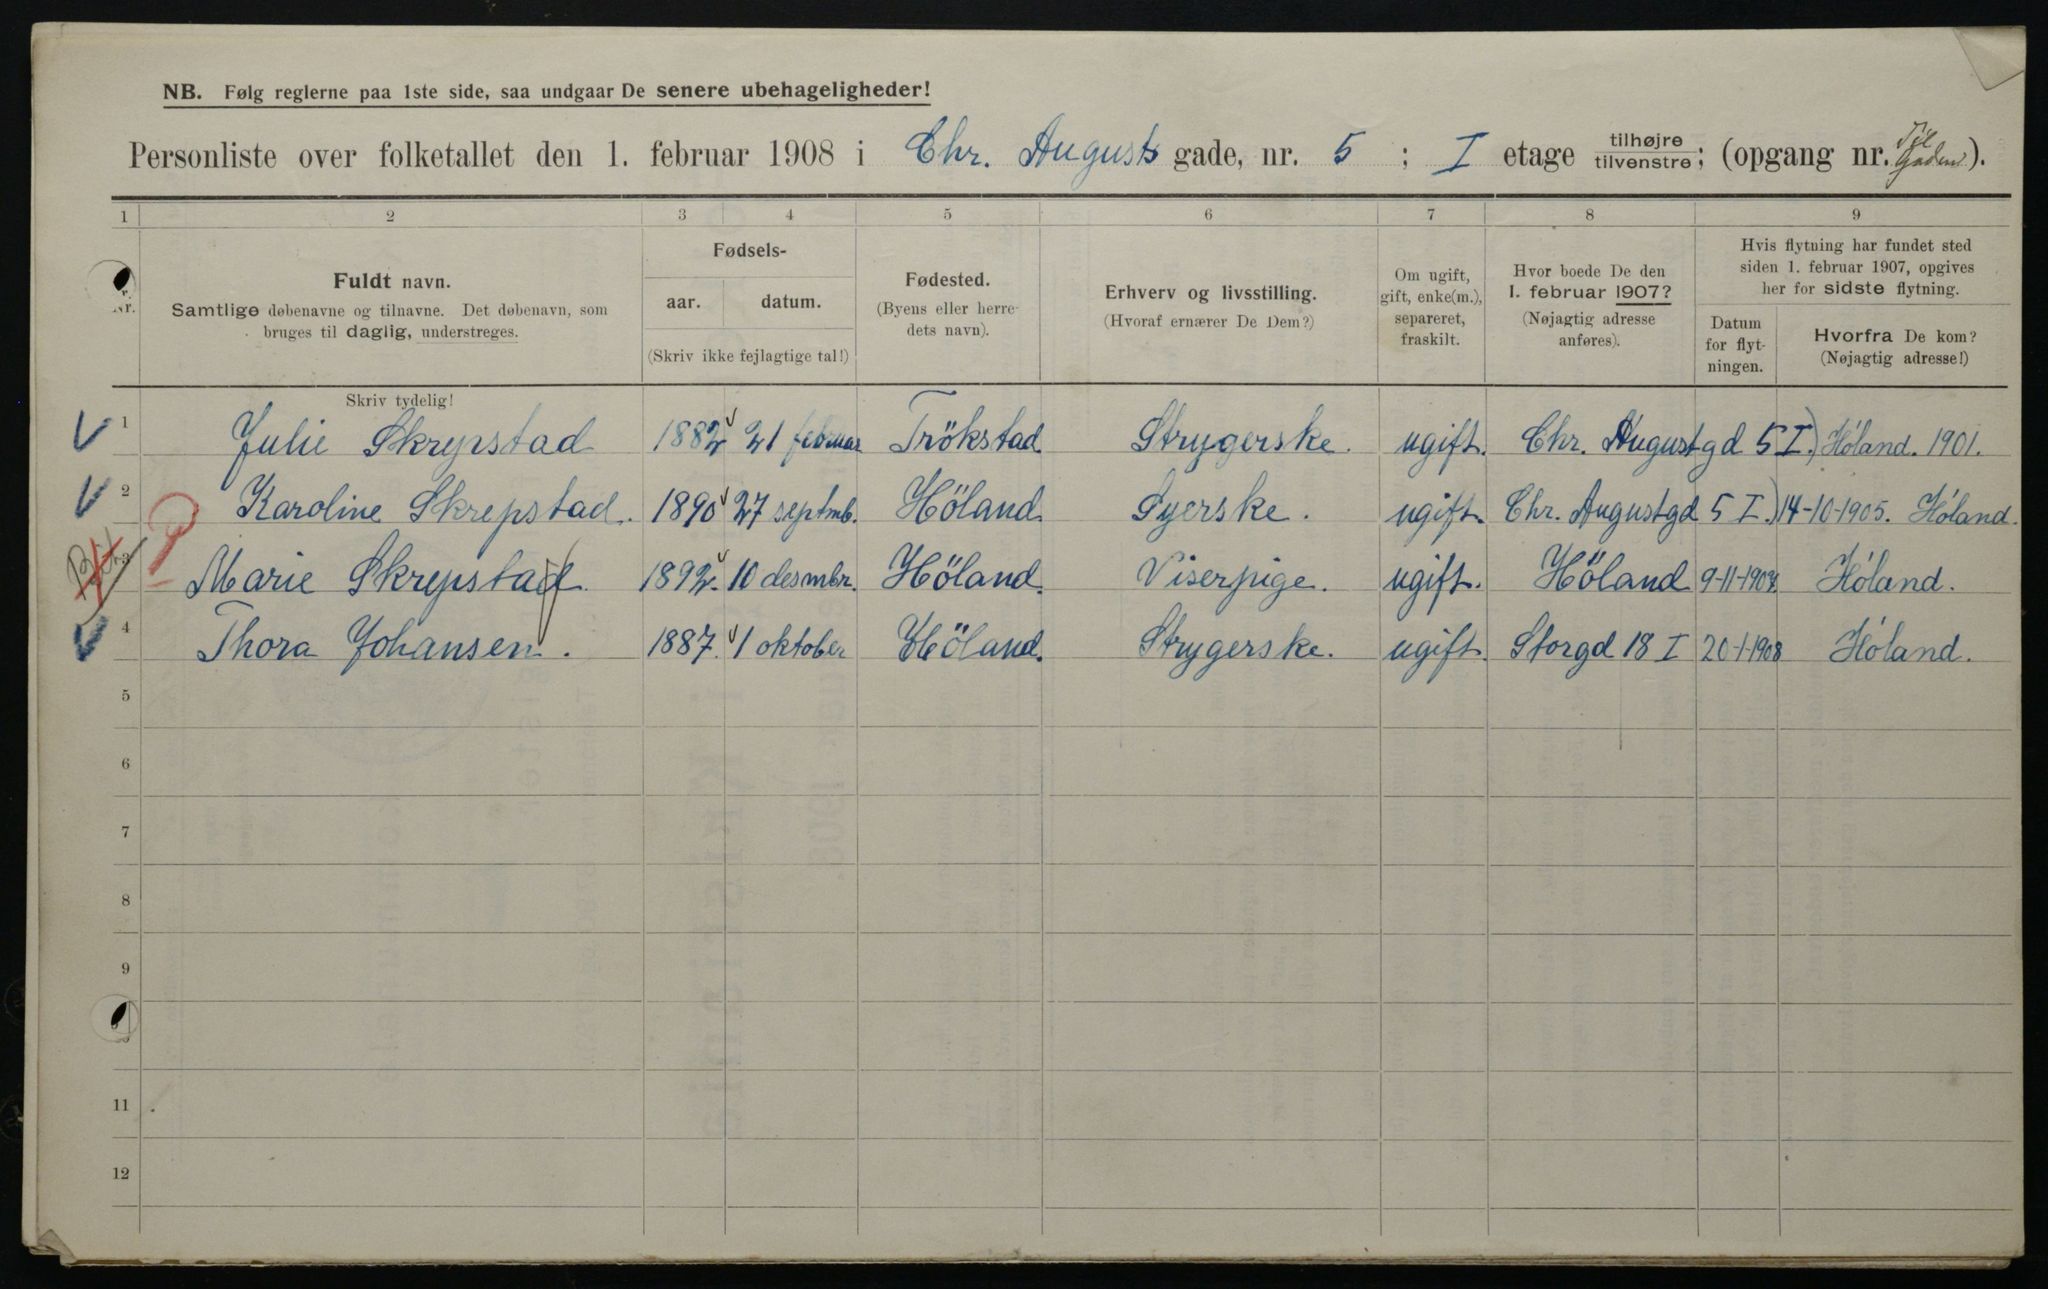 NB. Følg reglerne paa 1ste side, saa undgaar De senere ubehageligheder!
Personliste over folketallet den 1. februar 1908 i Chr. Augusts gade, nr. 5 ; I etage tilhøjre tilvenstre; (opgang nr. Til Gaden).
1 2 3 4 5 6 7 8 9
Nr.
Fuldt navn.
Samtlige døbenavne og tilnavne. Det døbenavn, som
bruges til daglig, understreges.
Skriv tydelig!
Fødsels-
aar. datum.
(Skriv ikke fejlagtige tal!)
Fødested.
(Byens eller herre-
dets navn).
Erhverv og livsstilling.
(Hvoraf ernærer De Dem?)
Om ugift,
gift, enke(m.),
separeret,
fraskilt.
Hvor boede De den
1. februar 1907?
(Nøjagtig adresse
anføres).
Hvis flytning har fundet sted
siden 1. februar 1907, opgives
her for sidste flytning.
Datum
for flyt-
ningen.
Hvorfra De kom?
(Nøjagtig adresse!)
1 Julie Skrepstad 1882 21 februar Trökstad Strygerske. ugift. Chr. Augustgd 5 I.) Höland. 1901.
2 Karoline Skrepstad. 1890 27 septmb. Höland Syerske. ugift. Chr. Augustgd 5 I.) 14-10-1905. Höland.
3 Marie Skrepstad 1892. 10 desmbr. Höland. Viserpige. ugift. Höland 9-11-1907. Höland.
4 Thora Johansen. 1887. 1 oktober Höland. Strygerske. ugift. Storgd 18 I 20-1-1908 Höland.
5
6
7
8
9
11
12